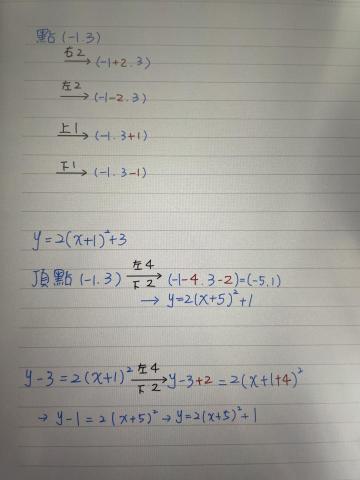 點(-1.3)
右2 → (-1+2.3)
左2 → (-1-2.3)
上1 → (-1.3+1)
下1 → (-1.3-1)
y=2(x+1)²+3
頂點(-1.3) 左4 下2 → (-1-4.3-2)=(-5.1)
→ y=2(x+5)²+1
y-3=2(x+1)² 左4 下2 → y-3+2=2(x+1+4)²
→ y-1=2(x+5)² → y=2(x+5)²+1